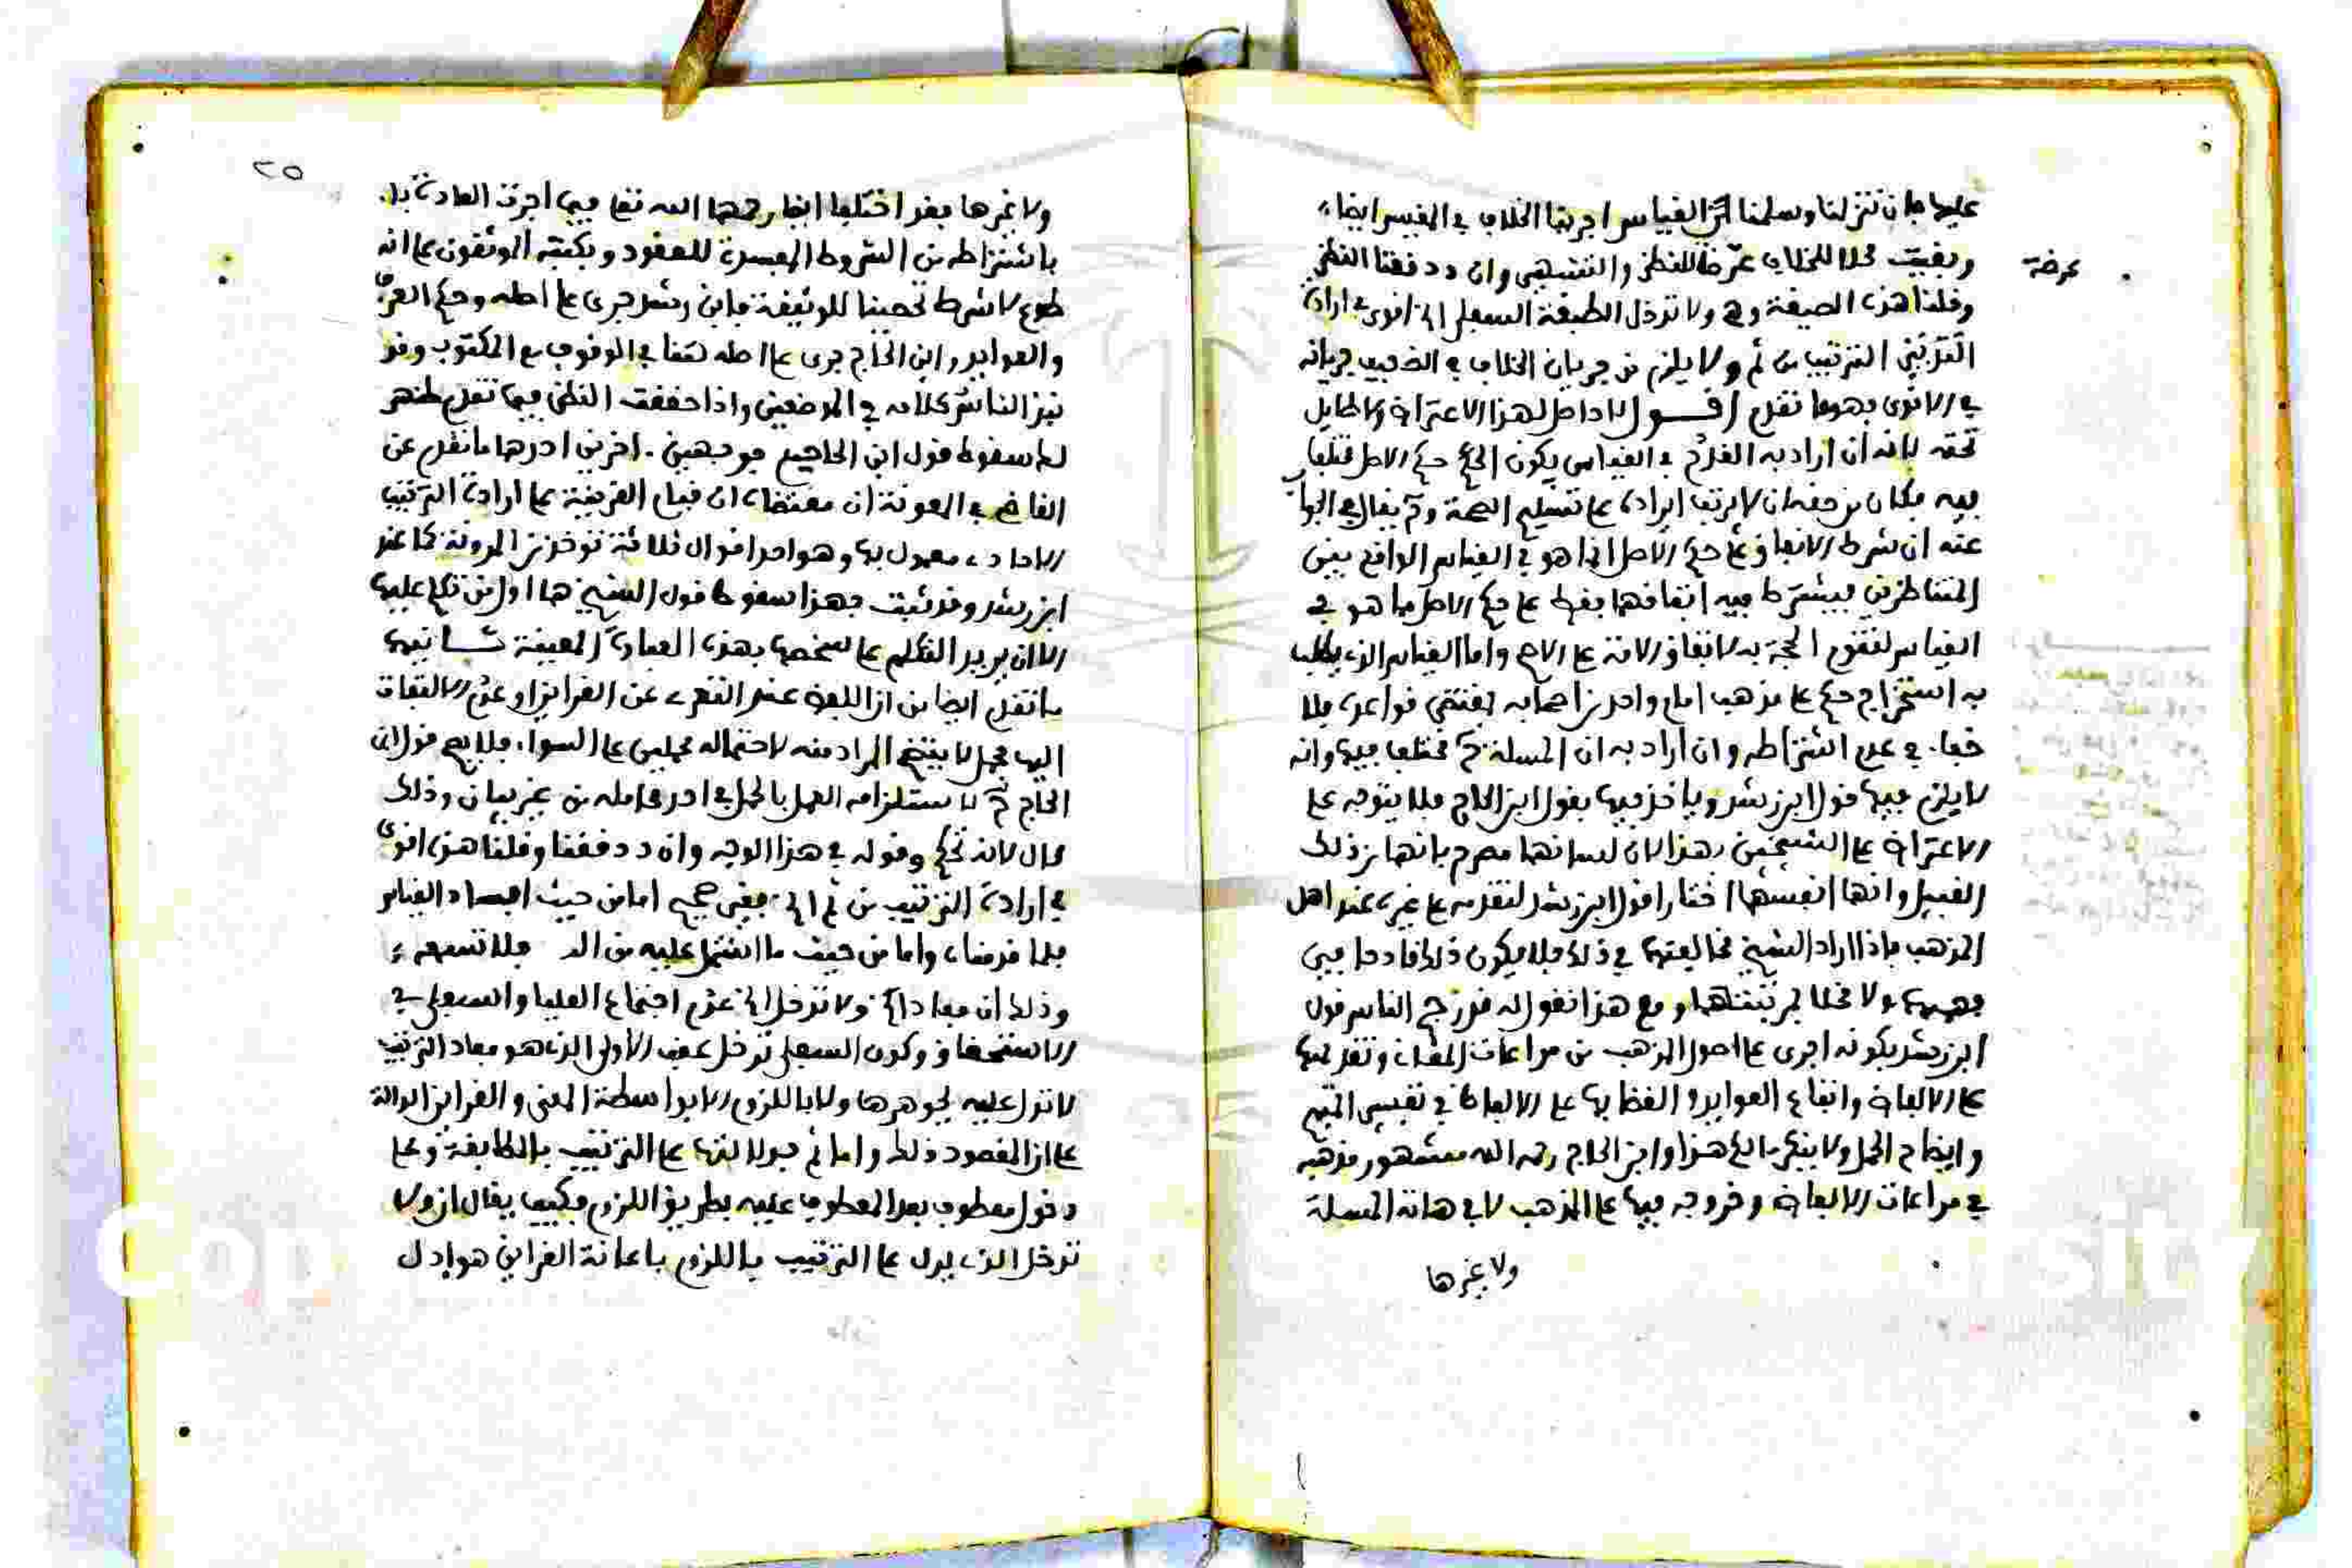 عليها فإن تنزلنا وسلمنا أن القياس اجرينا الخلاف في المقيس ايضا
وبقيت محلا للخلاف عرضة للنظر والتشبيه وان دققنا النظر
عرضة
وقلنا هذه الصيغة وهي ولا تدخل الطبقة السفلى الخ اقوى في ارادة
الترتيب من ثم ولا يلزم من جريان الخلاف في الضعيف جريانه
في الاقوى فهو ما تقدم اقول لا اصل لهذا الاعتراض ولا طايل
تحته لانه ان اراد به القدح في القياس بكون الحكم حكم الاصل مختلفا
فيه فكان من حقه ان لا يرتب ايراده على تسليم الصحة ثم يقال في الجواب
عنه ان شرط الاتفاق على حكم الاصل انما هو في القياس الواقع بين
المتناظرين فيشترط فيه اتفاقهما فقط على حكم الاصل فيما هو في
القياس لتقوم الحجة به لا اتفاق الامة على الاصح واما القياس الذي يطلب
به استخراج حكم على مذهب امام واحد من اصحابه بمقتضى قواعده فلا
خفاء في عدم اشتراطه وان اراد به ان المسلة ثم مختلف فيها وانه
لا يلزم فيها قول ابن رشد وياخذ فيها بقول ابن الحاج فلا يتوجه على
الاعتراض على الشيخين بهذا لان لسانهما مصرح بانهما من ذلك
القبيل وانهما انفسهما اختارا قول ابن رشد لتقدمه على غيره عند اهل
المذهب فاذا اراد الشيخ مخالفتهما في ذلك فلا يكون ذلك قادحا فيما
ومع هذا نقول له قد رجح الناس قول
ابن رشد بكونه اجرى على اصول المذهب من مراعات المقاصد وتقديمها
على الالفاظ واتباع العوايد والقضا بها على الالفاظ في تفسير المبهم
وايضاح المجمل ولا ينكر هذا وابن الحاج رحمه الله مشهور مذهبه
في مراعات الالفاظ وخروجه فيها على المذهب لا في هاته المسلة
ولا غيرها
٢٥
ولا غيرها فقد اختلفا ايضا رحمهما الله تعا فيما اجرت العادة
باشتراطه من الشروط المفسدة للعقود ويكتبه الموثقون على انه
طوع لا شرط تحصينا للوثيقة فابن رشد جرى على اصله وحكم العرف
والعوايد وابن الحاج جرى على اصله في الوقوف مع المكتوب وقد
نبز الناس كلامه في الموضعين واذا حققت النظر فيما تقدم ظهر
لك سقوط قول ابن الحاج من وجهين اخرين احدهما ما تقدم عن
القاضي في المعونة ان مقتضاه ان قيام القرينة على ارادة الترتيب
الاحاد معمول به وهو احد اقوال ثلاثة توخذ من المدونة كما عند
ابن رشد وقد ثبت بهذا سقوط قول الشيخ هما اول من تكلم عليها
الا ان يريد التكلم على شخصها بهذه العبارة المعينة ثانيهما
ما تقدم ايضا من ان اللفظ عند التعري عن القراين او عدم الالتفات
اليها مجمل لا يتضح المراد منه لاحتماله محملين على السواء فلا يصح قول ابن
الحاج ثم لاستلزامه العمل بالمجمل في احد محامله من غير بيان وذلك
محال لانه تحكم وقوله في هذا الوجه وان دققنا وقلنا هذه اقوى
في ارادة الترتيب من ثم الخ فغير صحيح اما من حيث افساد القياس
فلما قدمناه واما من حيث ما اشتمل عليه من الد فلا تسمعه
وذلك ان مفاد ولا تدخل الخ عدم اجتماع العليا والسفلى في
الاستحقاق وكون السفلى تدخل عقب الاولى الذي هو مفاد الترتيب
لا تدل عليه بجوهرها ولا باللزوم الا بواسطة المعنى والقراين الدالة
على ان المقصود ذلك واما ثم فدلالتها على الترتيب بالمطابقة وعلى
دخول معطوف بعد المعطوف عليه بطريق اللزوم فكيف يقال ان ولا
تدخل الذي يدل على الترتيب باللزوم باعانة القراين هو ادل